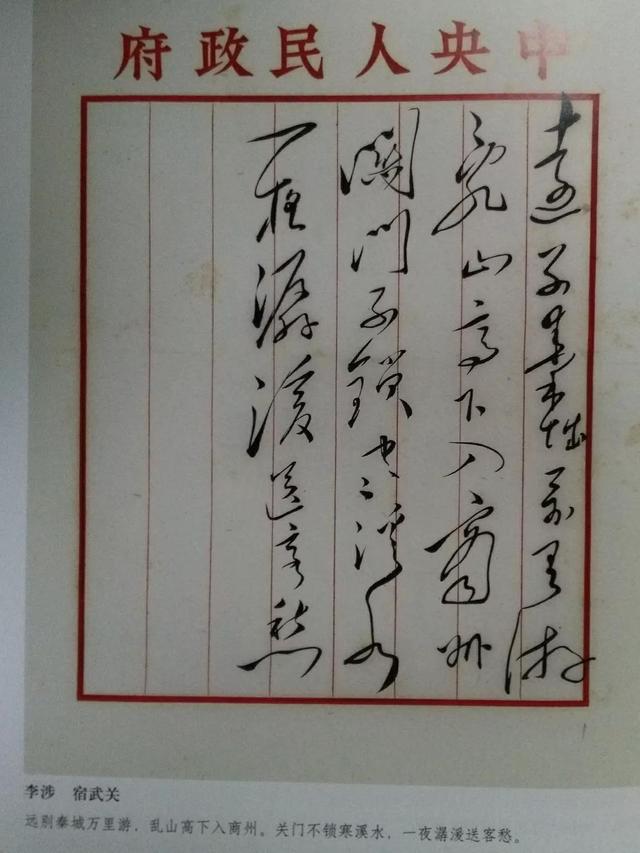 中央人民政府
遠别秦城萬里游
亂山高下入商州
關門不鎖寒溪水
一夜潺湲送客愁
李涉 宿武关
远别秦城万里游，乱山高下入商州。关门不锁寒溪水，一夜潺湲送客愁。